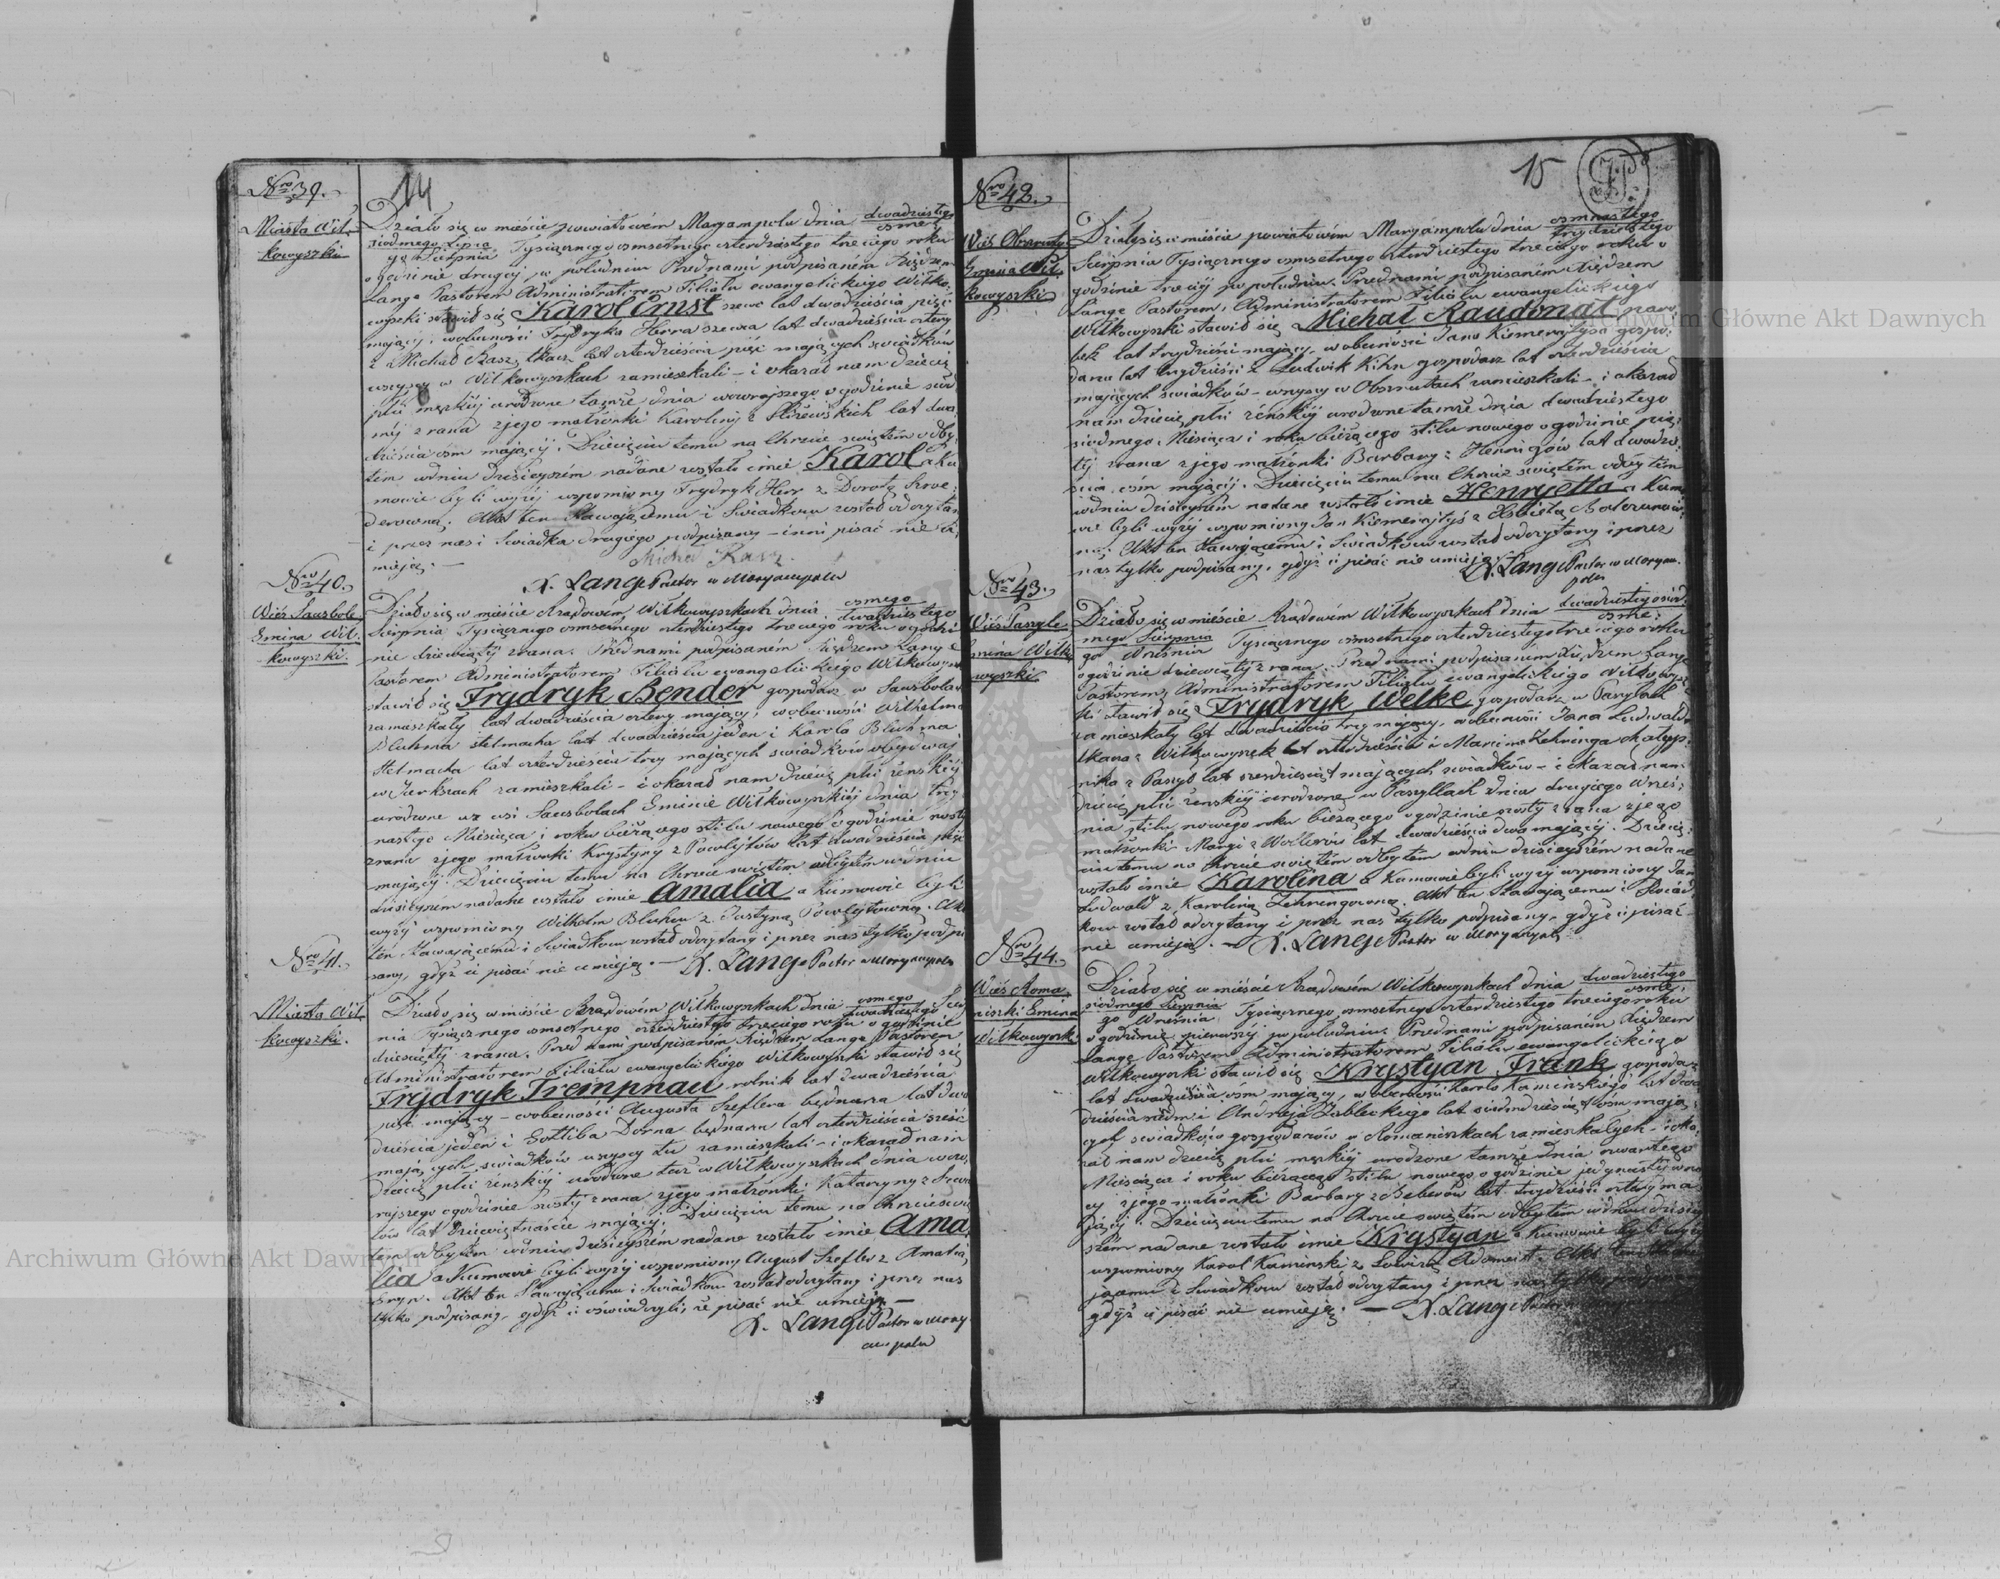 14
Nro 39.
Miasta Wił-
kowyszki
Działo się w mieście powiatowém Maryampolu dnia dwudziestego
siódmego Lipca
ósmego
go Sierpnia Tysiącznego osmsetnego czterdziestego trzeciego roku
o godzinie drugiej po południu Przed nami podpisaném Księdzem
Lange Pastorem Administratorem Filiału ewangelickiego Wiłko-
wyszki stawił się Karol Ernst szewc lat dwadzieścia pięć
mający, w obecności Frydryka Herra szewca lat dwadzieścia cztery
i Michał Kasz, tkacz lat czterdzieści pięć mających świadków
wszyscy w Wiłkowyszkach zamieszkali – i okazał nam dziecię
płci męzkiéj urodzone tamże dnia wczorajszego o godzinie siód
méj z rana z jego małżonki Karoliny z lat dwa
dzieścia osm mającéj. Dziecięciu temu na Chrzcie świętém odby-
tém w dniu dzisieyszém nadane zostało imie Karol a ku
mowie byli wyżéj wspomiony Frydryk Herr z Dorotą
Akt ten stawającemu i Świadkom został odczytan
i przez nas i Świadka drugiego podpisany – inni pisać nie u-
mieją. —
Michel Kasz
X. Lange Pastor w Maryampolu
Nro 40.
Wieś Sausbole
Gmina Wił-
kowyszki.
Działo się w mieście Rządowém Wiłkowyszkach dnia ósmego
dwudziestego
Sierpnia Tysiącznego osmsetnego czterdziestego trzeciego roku o godzi
nie dziewiątéj zrana. Przed nami podpisaném Księdzem Lange
Pastorem Administratorem Filiału ewangelickiego Wiłkowyszki
stawił się Frydryk Bender gospodarz w Sausbolach
zamieszkały lat dwadzieścia cztery mający, w obecności Wilhelma
Bluhma stelmacha lat dwadzieścia jeden i Karola Bluhma
Stelmacha lat czterdzieści trzy mających świadków obydwaj
w zamieszkali – i okazał nam dziecię płci żeńskiéj
urodzone we wsi Sausbolach Gminie Wiłkowyskiéj dnia trzy
nastego Miesiąca i roku bieżącego stilu nowego o godzinie szóstéj
zrana z jego małżonki Krystyny z lat dwadzieścia pięć
mającéj. Dziecięciu temu na Chrzcie świętém odbytém w dniu
dzisieyszém nadane zostało imie Amalia a Kumowie byli
wyżéj wspomiony Wilhelm Bluhm z Justyną Akt
ten stawającemu i Świadkom został odczytany i przez nas tylko podpi
sany, gdyż ci pisać nie umieją. — X. Lange Pastor w Maryampolu
Nro 41.
Miasta Wił-
kowyszki.
Działo się w mieście Rządowém Wiłkowyszkach dnia ósmego
dwudziestego Sierp
nia Tysiącznego osmsetnego czterdziestego trzeciego roku o godzinie
dziesiątéj zrana. Przed nami podpisaném Księdzem Lange Pastorem
Administratorem Filiału ewangelickiego Wiłkowyszki stawił się
Frydryk Trempnau rolnik lat dwadzieścia
pięć mający – w obecności Augusta Szeflera bednarza lat dwa
dzieścia jeden i Gottliba Dorna bednarza lat czterdzieści sześć
mających świadków wszyscy tu zamieszkali – i okazał nam
Dziecię płci żeńskiéj urodzone tuż w Wiłkowyszkach dnia wczo-
rajszego o godzinie szóstéj zrana z jego małżonki Katarzyny z
lat dziewiętnaście mającéj. Dziecięciu temu na Chrzcie świę
tém odbytém w dniu dzisieyszém nadane zostało imie Ama
lia a Kumowie byli wyżéj wspomiony August Szefler z Amalią
Akt ten Stawającemu i Świadkom został odczytany i przez nas
tylko podpisany, gdyż ci oświadczyli, że pisać nie umieją. —
X. Lange Pastor w Mary-
ampolu
15
Nro 42.
Wieś Obszruty
Gmina Wił-
kowyszki
Działo się w mieście powiatowém Maryampolu dnia osmnastego
trzydziestego
Sierpnia Tysiącznego osmsetnego czterdziestego trzeciego roku o
godzinie trzeciéj po południu. Przed nami podpisaném Księdzem
Lange Pastorem, Administratorem Filiału ewangelickiego
Wiłkowyszki stawił się Michał Raudonat paro-
bek lat trzydzieści mający, w obecności Jana gospo-
darza lat trzydzieści i Ludwik Kihn gospodarz lat czterdzieścia
mających świadków – wszyscy w Obszrutach zamieszkali – i okazał
nam dziecię płci żeńskiéj urodzone tamże dnia dwudziestego
siódmego Miesiąca i roku bieżącego stilu nowego o godzinie pią-
téj zrana z jego małżonki Barbary z Hennigów lat dwadzie-
ścia osm mającéj. Dziecięciu temu na Chrzcie świętém odbytém
w dniu dzisieyszém nadane zostało imie Henryetta a Kum
owie byli wyżéj wspomiony Jan z Elżbietą
Akt ten stawającemu i Świadkom został odczytany i przez
nas tylko podpisany, gdyż ci pisać nie umieją. X. Lange Pastor w Maryam-
polu
Nro 43.
Wieś Paszyle
Gmina Wiłko
wyszki
Działo się w mieście Rządowém Wiłkowyszkach dnia dwudziestego siód-
ósme-
mego Sierpnia
go Września Tysiącznego osmsetnego czterdziestego trzeciego roku
o godzinie dziewiątéj z rana. Przed nami podpisaném Księdzem Lange
Pastorem, Administratorem Filiału ewangelickiego Wiłkowysz-
ki stawił się Frydryk Welke gospodarz w Paszylach
zamieszkały lat dwadzieścia trzy mający, w obecności Jana Ludwalda
tkacza z Wiłkowyszek lat czterdzieścia i Marcina Zehringa
z Paszyl lat sześdziesiąt mających świadków – i okazał nam
dziecię płci żeńskiéj urodzone w Paszyllach dnia drugiego Wrześ-
nia stilu nowego roku bieżącego o godzinie szóstéj z rana z jego
małżonki Maryi z lat dwadzieścia dwa mającéj. Dziecię-
ciu temu na Chrzcie świętém odbytém w dniu dzisieyszém nadane
zostało imie Karolina a Kumowie byli wyżéj wspomiony Jan
Ludwald z Karoliną Zehringowną. Akt ten Stawającemu i Świad
kom został odczytany i przez nas tylko podpisany, gdyż ci pisać
nie umieją. — X. Lange Pastor w Maryampolu
Nro 44.
Wieś Roma
niszki Gmina
Wiłkowyszk
Działo się w mieście Rządowém Wiłkowyszkach dnia dwudziestego
ósme-
siódmego Sierpnia
go Września Tysiącznego osmsetnego czterdziestego trzeciego roku
o godzinie pierwszéj po południu. Przed nami podpisaném Księdzem
Lange Pastorem Administratorem Filiału ewangelickiego
Wiłkowyszki stawił się Krystyan Frank gospodarz
lat dwadzieścia osm mający, w obecności Karola Kamińskiego lat dwa
dzieścia siedm i Andrzeja Zableckiego lat siedmdziesiąt osm mają-
cych świadków gospodarzów w Romaniszkach zamieszkałych – i oka-
zał nam dziecię płci męzkiéj urodzone tamże dnia czwartego
Miesiąca i roku bieżącego stilu nowego o godzinie jedynastéj w no
cy z jego małżonki Barbary z Beberów lat trzydzieści cztery ma
jącéj. Dziecięciu temu na Chrzcie świętém odbytém w dniu dzisiey
szém nadane zostało imie Krystyan a Kumowie byli wyżéj
wspomiony Karol Kamiński z Lowizą Adomeit. Akt ten stawa
jącemu i Świadkom został odczytany i przez nas tylko podpisany
gdyż ci pisać nie umieją. — X. Lange Pastor w
Archiwum Główne Akt Dawnych
Archiwum Główne Akt Dawnych